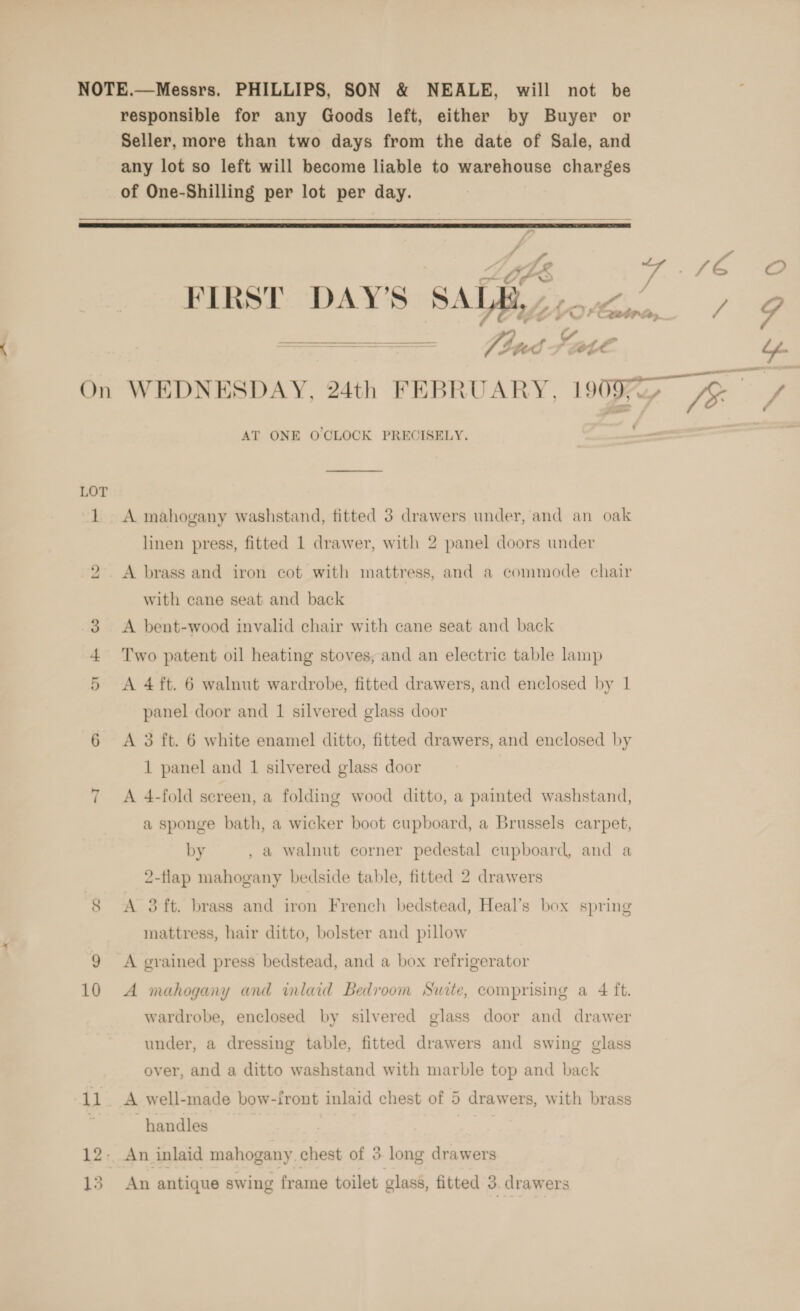 NOTE.—Messrs. PHILLIPS, SON & NEALE, will not be
responsible for any Goods left, either by Buyer or
Seller, more than two days from the date of Sale, and
any lot so left will become liable to warehouse charges
of One-Shilling per lot per day.
FIRST DAY'S SALE,
On WEDNESDAY, 24th FEBRUARY, 1909,
AT ONE O'CLOCK PRECISELY.
LOT
1 A mahogany washstand, fitted 3 drawers under, and an oak
linen press, fitted 1 drawer, with 2 panel doors under
2 A brass and iron cot with mattress, and a commode chair
with cane seat and back
3 A bent-wood invalid chair with cane seat and back
4 Two patent oil heating stoves, and an electric table lamp
5 A 4 ft. 6 walnut wardrobe, fitted drawers, and enclosed by 1
panel door and 1 silvered glass door
6 A 3 ft. 6 white enamel ditto, fitted drawers, and enclosed by
1 panel and 1 silvered glass door
7 A 4-fold screen, a folding wood ditto, a painted washstand,
a sponge bath, a wicker boot cupboard, a Brussels carpet,
by , a walnut corner pedestal cupboard, and a
2-flap mahogany bedside table, fitted 2 drawers
8 A 3 ft. brass and iron French bedstead, Heal's box spring
mattress, hair ditto, bolster and pillow
9 A grained press bedstead, and a box refrigerator
10 A mahogany and inlaid Bedroom Suite, comprising a 4 ft.
wardrobe, enclosed by silvered glass door and drawer
under, a dressing table, fitted drawers and swing glass
over, and a ditto washstand with marble top and back
11 A well-made bow-front inlaid chest of 5 drawers, with brass
handles
12 An inlaid mahogany chest of 3 long drawers
13 An antique swing frame toilet glass, fitted 3 drawers